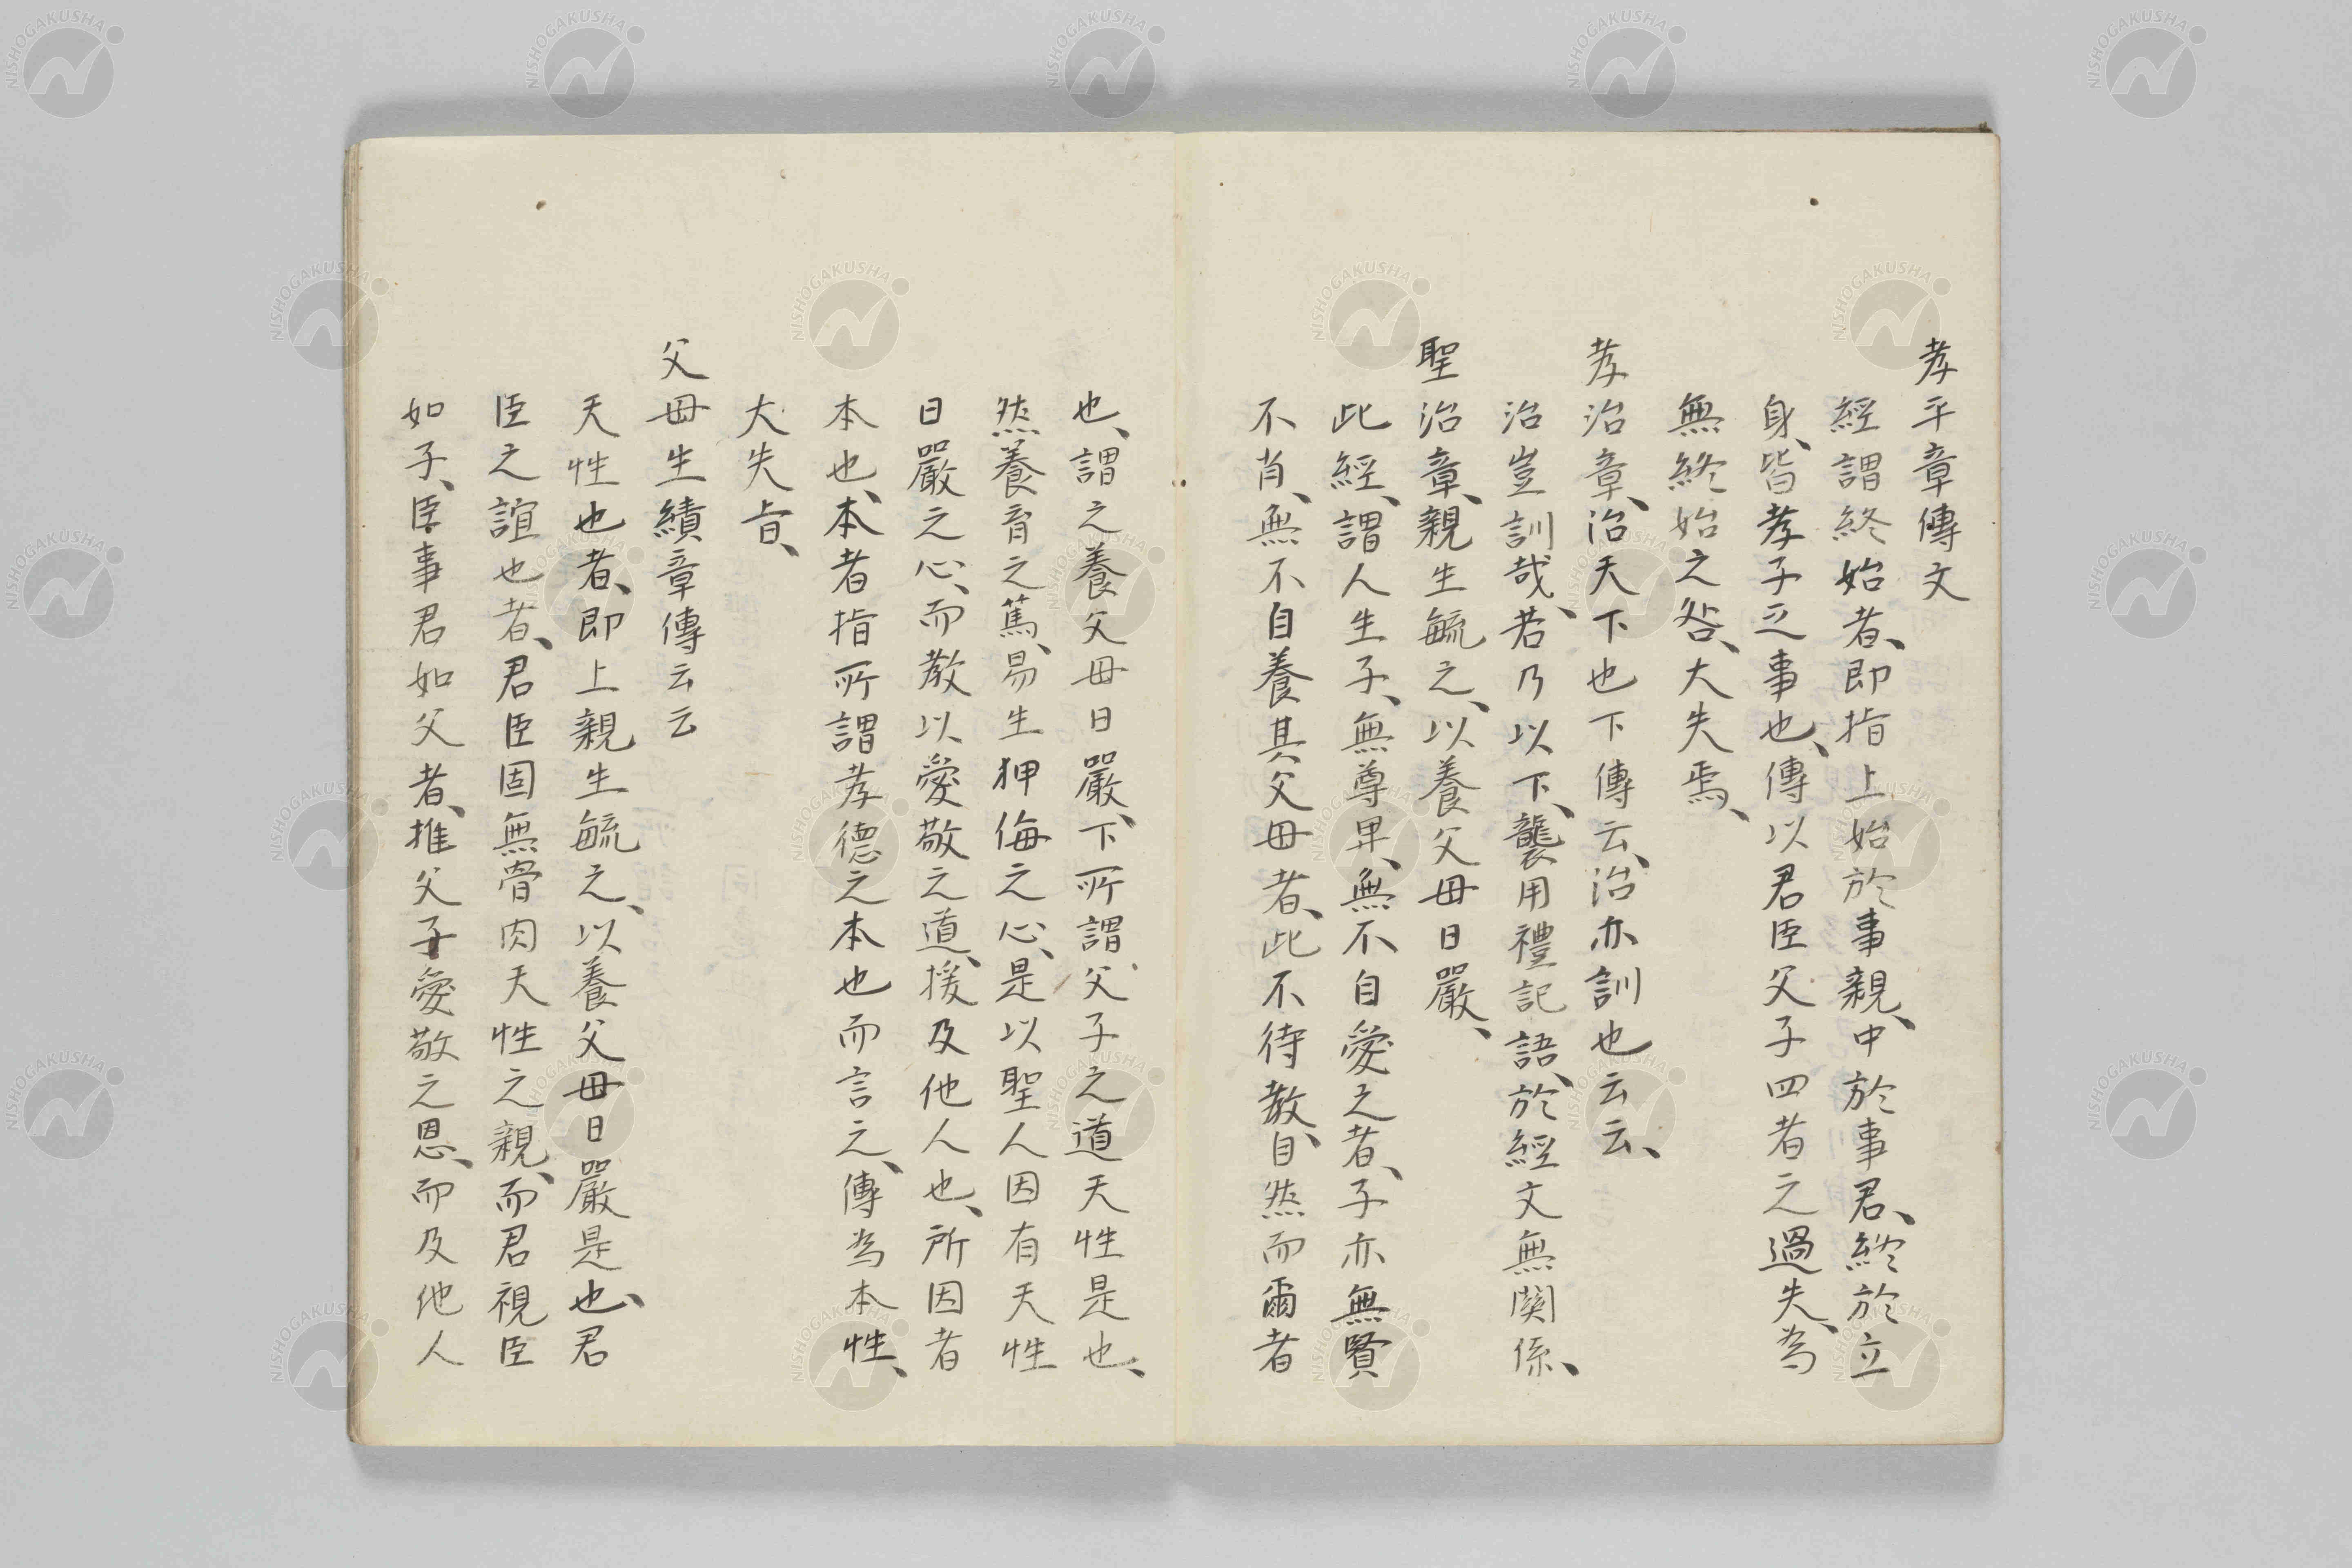 孝平章傳文
經謂終始者、即指上始於事親、中於事君、終於立
身、皆孝子之事也、傳以君臣父子四者之過失、為
無終始之咎、大失焉、
孝治章、治天下也下傳云、治亦訓也云云、
治豈訓哉、若乃以下、襲用禮記語、於經文無関係、
聖治章、親生毓之、以養父母日嚴、
此經、謂人生子、無尊卑、無不自愛之者、子亦無賢
不肖、無不自養其父母者、此不待教、自然而爾者
也、謂之養父母日嚴、下所謂父子之道天性是也、
然養育之篤、易生狎侮之心、是以聖人因有天性
日嚴之心、而教以愛敬之道、援及他人也、所因者
本也、本者指所謂孝德之本也而言之、傳為本性、
大失旨、
父母生績章傳云云
天性也者、即上親生毓之、以養父母日嚴是也、君
臣之誼也者、君臣固無骨肉天性之親、而君視臣
如子、臣事君如父者、推父子愛敬之恩、而及他人
NISHOGAKUSHA